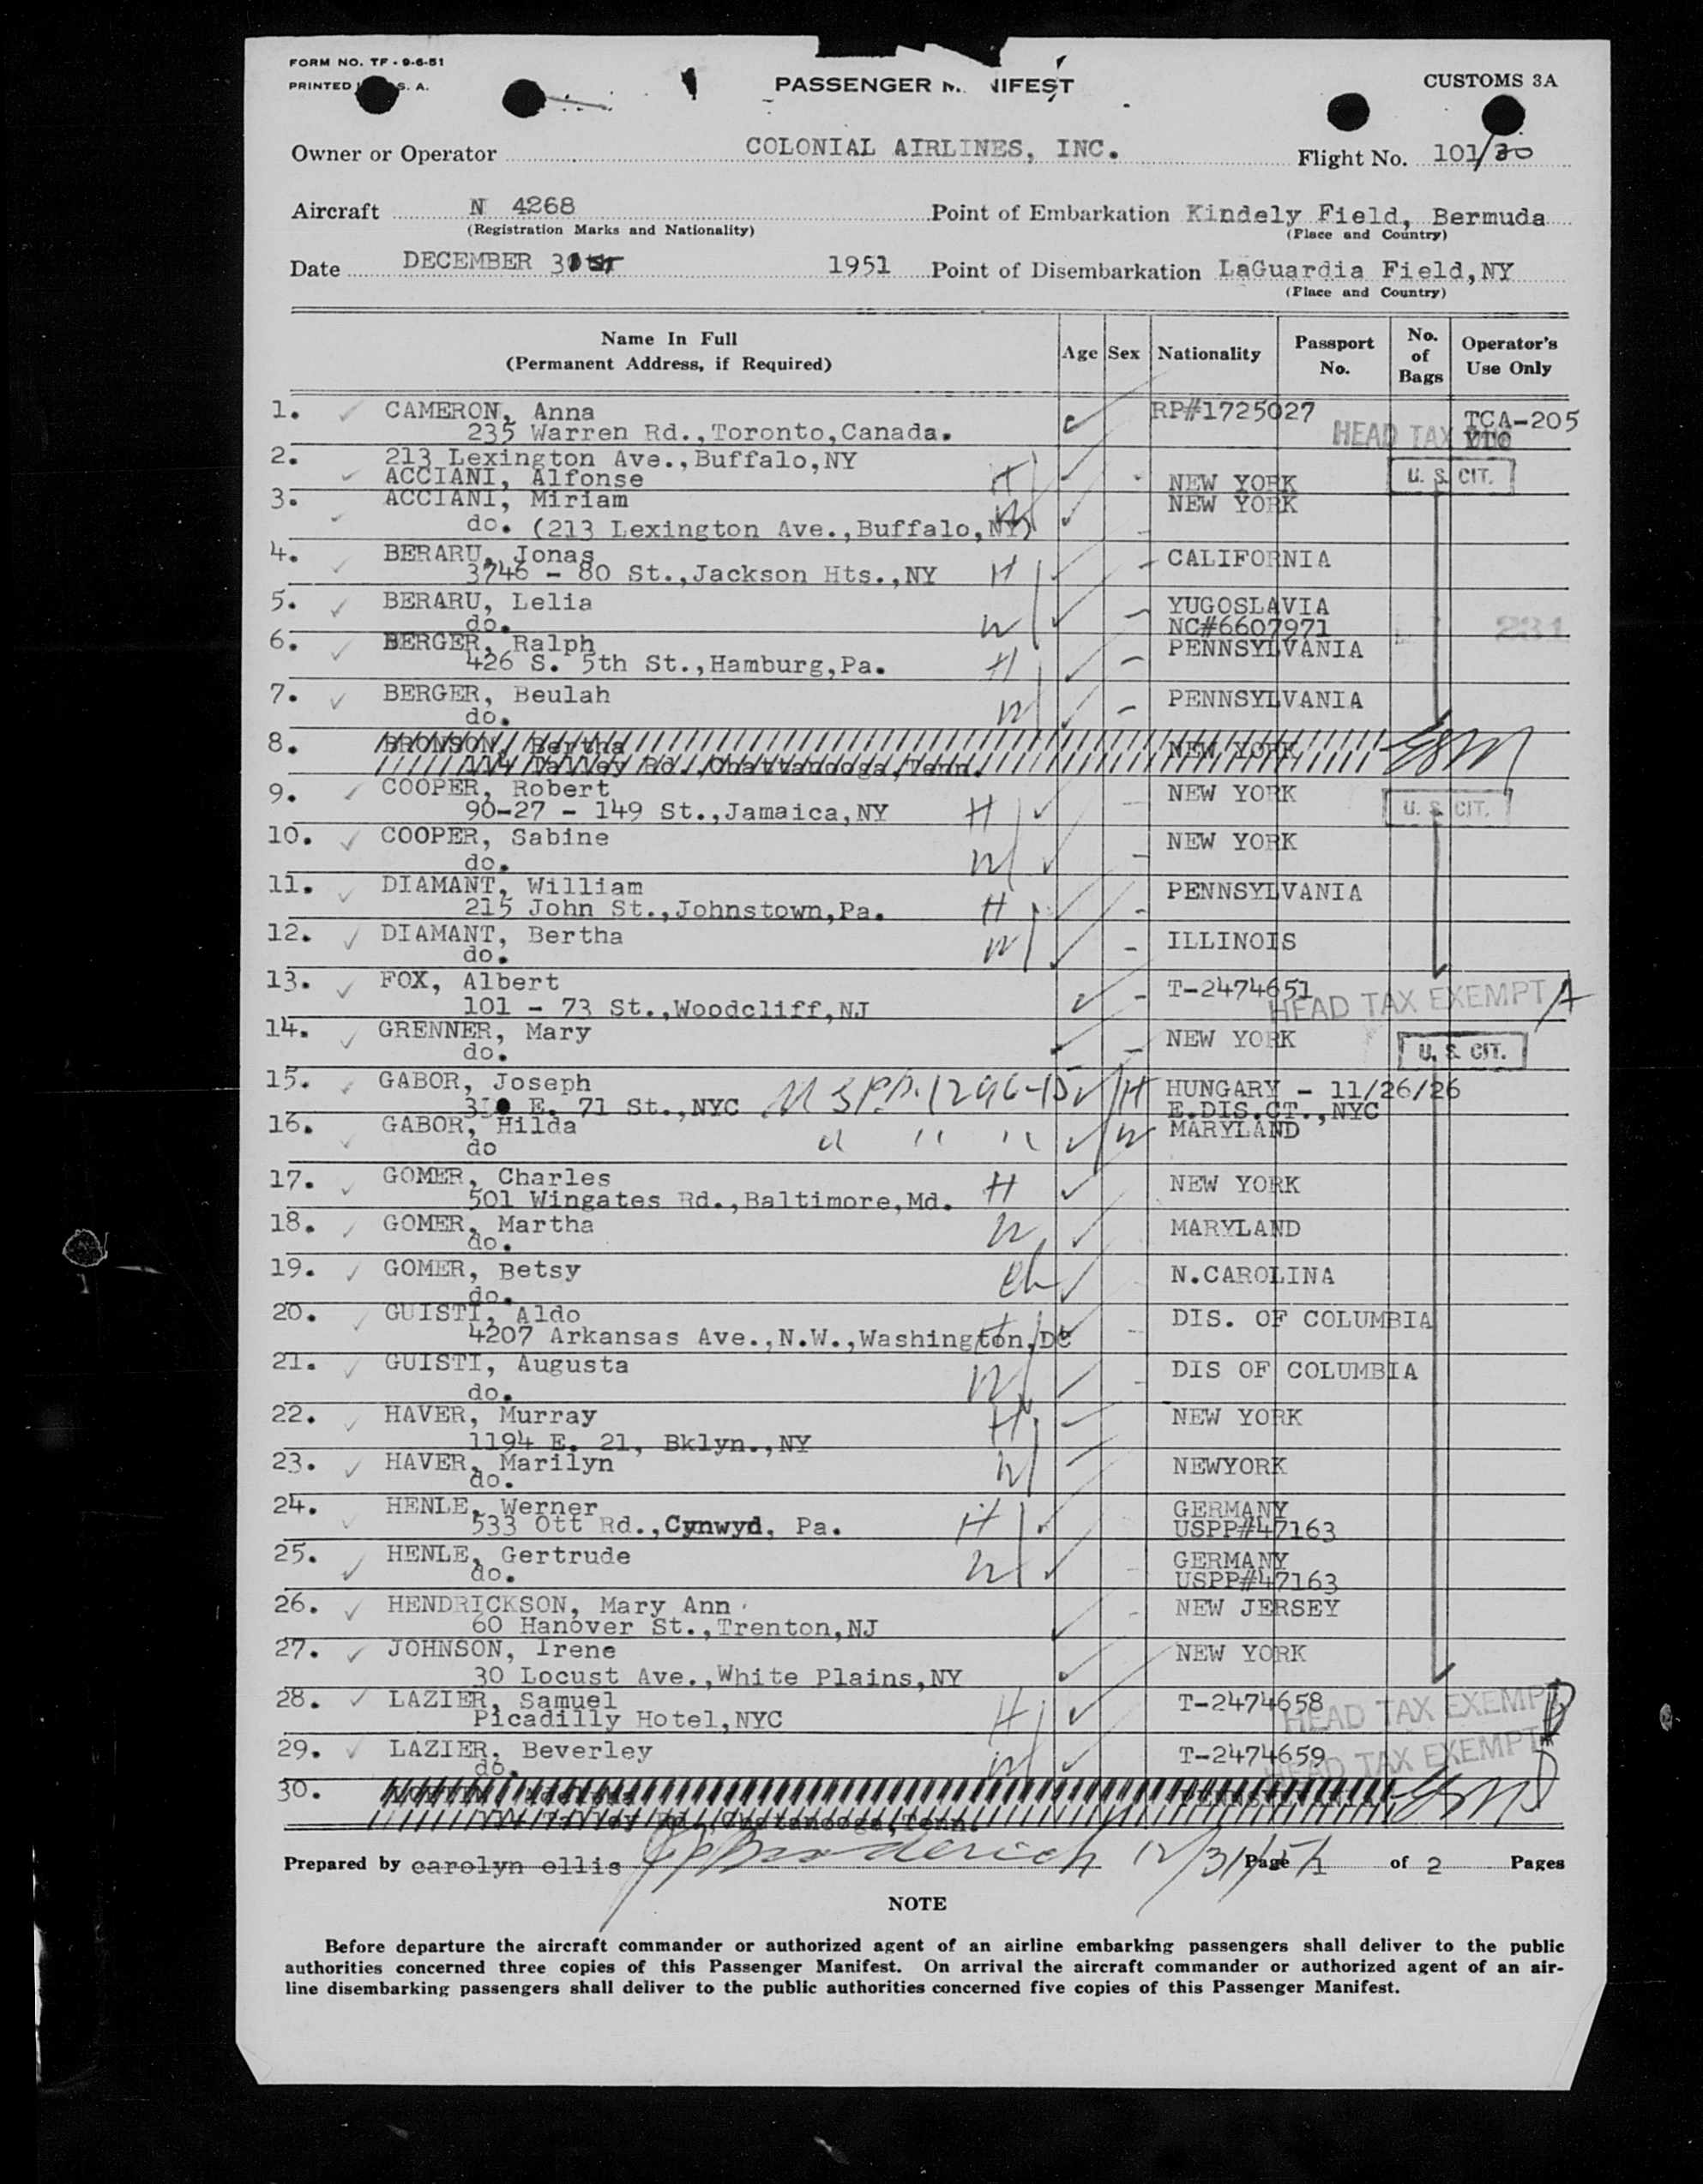 FORM NO. TF - 9-6-51
PRINTED S. A.
PASSENGER M NIFEST
CUSTOMS 3A
Owner or Operator COLONIAL AIRLINES, INC. Flight No. 101/30
Aircraft N 4268 Point of Embarkation Kindely Field, Bermuda
(Registration Marks and Nationality) (Place and Country)
Date DECEMBER 31st 1951 Point of Disembarkation LaGuardia Field,NY
(Place and Country)
Name In Full
(Permanent Address, if Required)
Age Sex Nationality Passport No. No. of Bags Operator's Use Only
1. CAMERON, Anna RP#1725027 TCA-205
235 Warren Rd.,Toronto,Canada. HEAD TAX
2. 213 Lexington Ave.,Buffalo,NY
ACCIANI, Alfonse H NEW YORK U. S. CIT.
3. ACCIANI, Miriam W NEW YORK
do. (213 Lexington Ave.,Buffalo,NY)
4. BERARU, Jonas CALIFORNIA
3746 - 80 St.,Jackson Hts.,NY H
5. BERARU, Lelia YUGOSLAVIA
do. W NC#6607971 231
6. BERGER, Ralph PENNSYLVANIA
426 S. 5th St.,Hamburg,Pa. H
7. BERGER, Beulah PENNSYLVANIA
do. W
8. BRONSON, Bertha NEW YORK
Rd.,Chattanooga,Tenn.
9. COOPER, Robert NEW YORK
90-27 - 149 St.,Jamaica,NY H U. S. CIT.
10. COOPER, Sabine NEW YORK
do. W
11. DIAMANT, William PENNSYLVANIA
215 John St.,Johnstown,Pa. H
12. DIAMANT, Bertha ILLINOIS
do. W
13. FOX, Albert T-2474651
101 - 73 St.,Woodcliff,NJ HEAD TAX EXEMPT A
14. GRENNER, Mary NEW YORK
do. U. S. CIT.
15. GABOR, Joseph H HUNGARY - 11/26/26
E. 71 St.,NYC E.DIS.CT.,NYC
16. GABOR, Hilda " " " W MARYLAND
do
17. GOMER, Charles H NEW YORK
501 Wingates Rd.,Baltimore,Md.
18. GOMER, Martha W MARYLAND
do.
19. GOMER, Betsy ch N.CAROLINA
do.
20. GUISTI, Aldo DIS. OF COLUMBIA
4207 Arkansas Ave.,N.W.,Washington,DC H
21. GUISTI, Augusta DIS OF COLUMBIA
do. W
22. HAVER, Murray H NEW YORK
1194 E. 21, Bklyn.,NY
23. HAVER, Marilyn W NEWYORK
do.
24. HENLE, Werner GERMANY
533 Ott Rd.,Cynwyd, Pa. H USPP#47163
25. HENLE, Gertrude GERMANY
do. W USPP#47163
26. HENDRICKSON, Mary Ann NEW JERSEY
60 Hanover St.,Trenton,NJ
27. JOHNSON, Irene NEW YORK
30 Locust Ave.,White Plains,NY
28. LAZIER, Samuel T-2474658
Picadilly Hotel,NYC H HEAD TAX EXEMPT D
29. LAZIER, Beverley T-2474659
do. W HEAD TAX EXEMPT D
30. PENNSYLVANIA
Rd.,Chatanooga,Tenn.
Prepared by carolyn ellis 12/31/51 Page 1 of 2 Pages
NOTE
Before departure the aircraft commander or authorized agent of an airline embarking passengers shall deliver to the public
authorities concerned three copies of this Passenger Manifest. On arrival the aircraft commander or authorized agent of an air-
line disembarking passengers shall deliver to the public authorities concerned five copies of this Passenger Manifest.